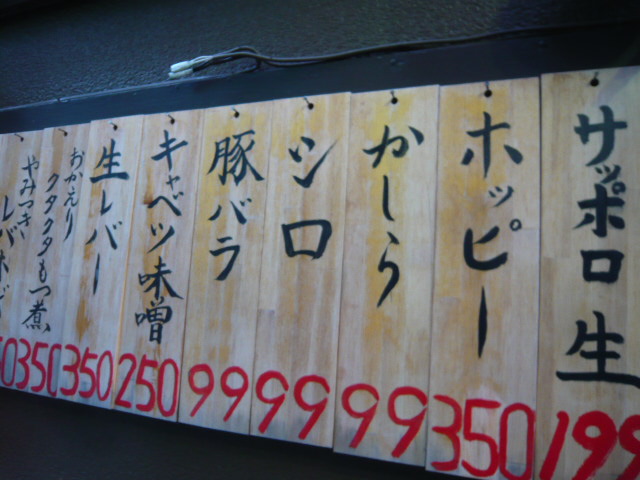 サッポロ生
199
ホッピー
350
かしら
99
シロ
99
豚バラ
99
キャベツ味噌
250
生レバー
350
おかえり
クタクタもつ煮
350
やみつき